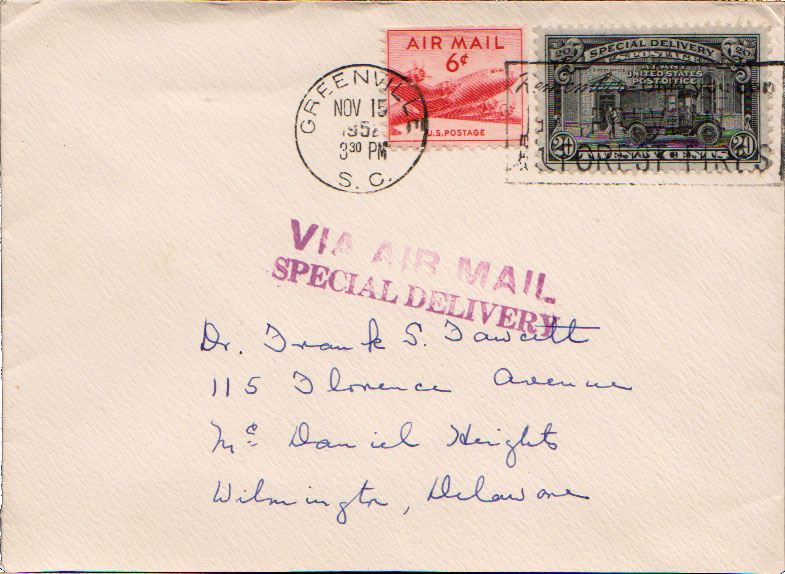 GREENVILLE
NOV 15
1952
3 30 PM
S. C.
AIR MAIL
6¢
U.S. POSTAGE
20 SPECIAL DELIVERY 20
U.S. POSTAGE
AT ANY
UNITED STATES
POST OFFICE
20 TWENTY CENTS 20
FOREST FIRES
VIA AIR MAIL
SPECIAL DELIVERY
Dr. Frank S. Fawcett
115 Florence Avenue
Mc Daniel Heights
Wilmington, Delaware